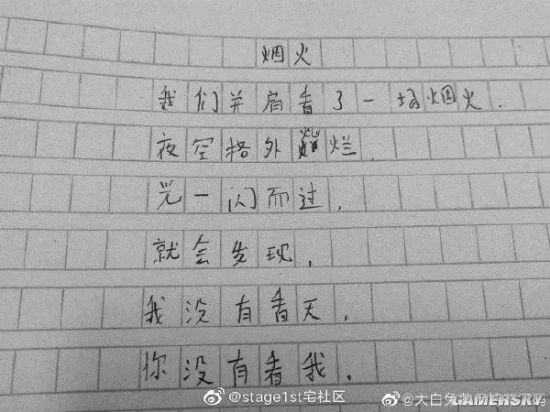 烟火
我们并肩看了一场烟火.
夜空格外灿烂.
光一闪而过,
就会发现,
我没有看天,
你没有看我.
@stage1st宅社区
@大白兔
GAMERSKY